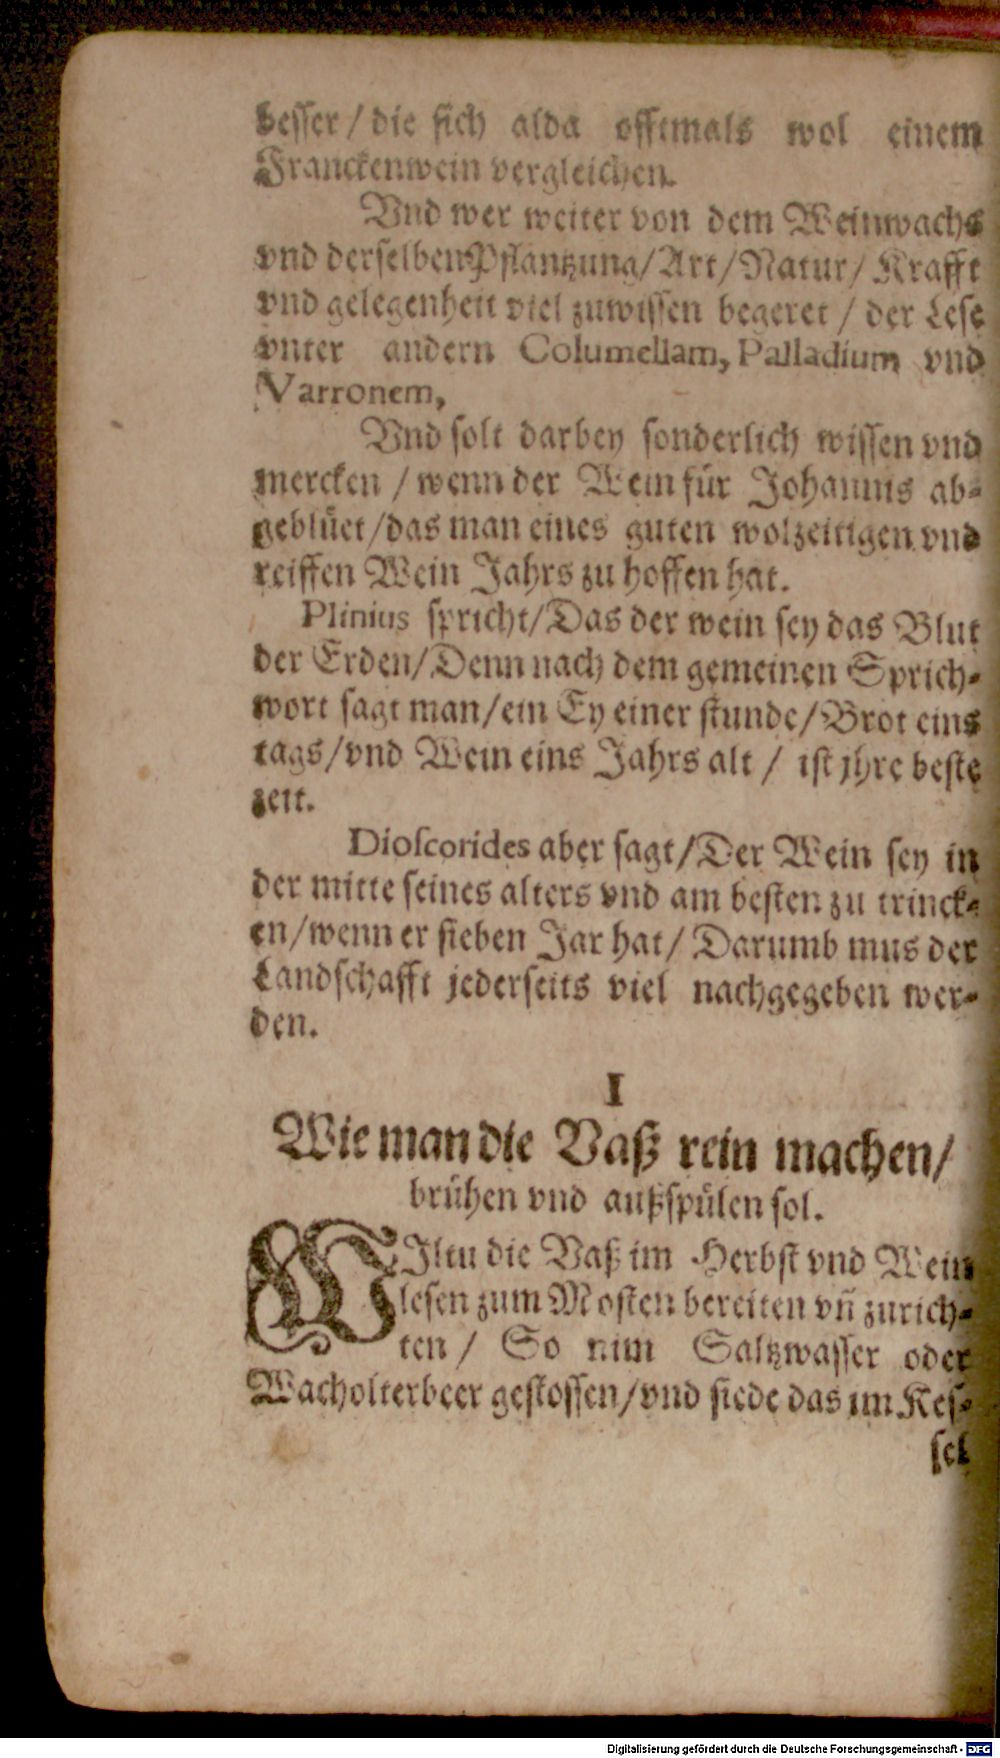 besser / die sich alda offtmals wol einem
Franckenwein vergleichen.
Vnd wer weiter von dem Weinwachs
vnd derselben Pflantzung / Art / Natur / Krafft
vnd gelegenheit viel zuwissen begeret / der Lese
vnter andern Columellam, Palladium vnd
Varronem,
Vnd solt darbey sonderlich wissen vnd
mercken / wenn der Wein für Johannis ab-
geblüet / das man eines guten wolzeitigen vnd
reiffen Wein Jahrs zu hoffen hat.
Plinius spricht / Das der wein sey das Blut
der Erden / Denn nach dem gemeinen Sprich-
wort sagt man / ein Ey einer stunde / Brot eins
tags / vnd Wein eins Jahrs alt / ist jhre beste
zeit.
Dioſcorides aber sagt / Der Wein sey in
der mitte seines alters vnd am besten zu trinck-
en / wenn er sieben Jar hat / Darumb mus der
Landschafft jederseits viel nachgegeben wer-
den.
I
Wie man die Vaß rein machen /
brühen vnd außspülen sol.
WIltu die Vaß im Herbst vnd Wein
lesen zum Mosten bereiten vñ zurich-
ten / So nim Saltzwasser oder
Wacholterbeer gestossen / vnd siede das im Kes-
sel
Digitalisierung gefördert durch die Deutsche Forschungsgemeinschaft - DFG